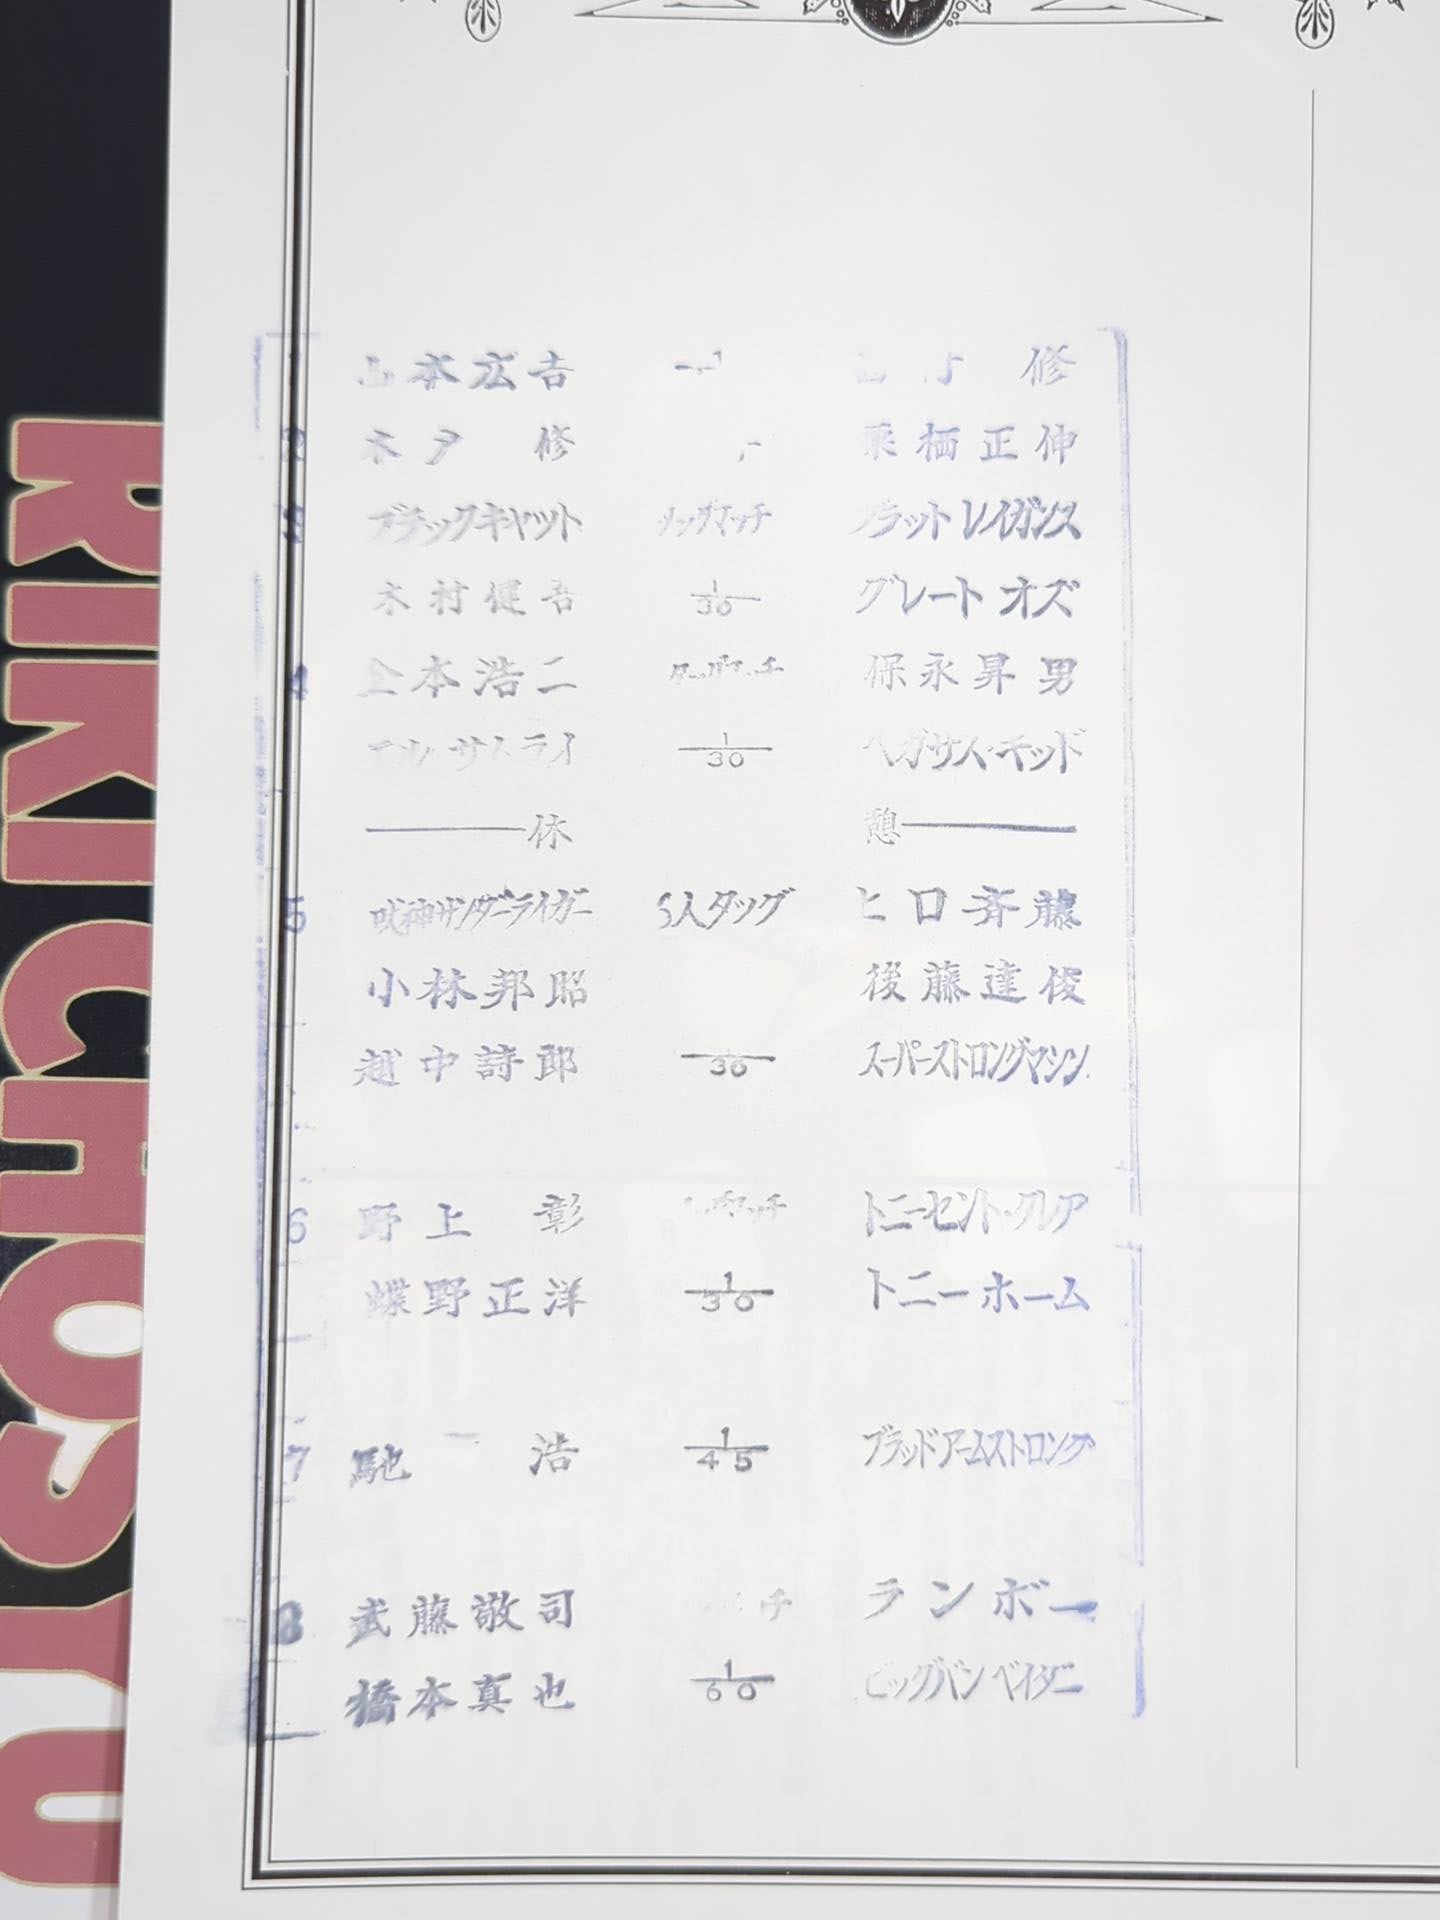 RIKI CHOSYU
山本広吉 修
2 木戸 修 栗栖正伸
3 ブラックキャット タッグマッチ ブラットレイガンス
木村健吾 1/30 グレートオズ
4 金本浩二 タッグマッチ 保永昇男
エル・サムライ 1/30 ペガサス・キッド
休 憩
5 獣神サンダーライガー 6人タッグ ヒロ斉藤
小林邦昭 後藤達俊
越中詩郎 1/30 スーパーストロングマシン
6 野上 彰 トニーセント・クレア
蝶野正洋 1/30 トニーホーム
7 馳 浩 1/45 ブラッドアームストロング
8 武藤敬司 ランボー
橋本真也 1/60 ビッグバンベイダー